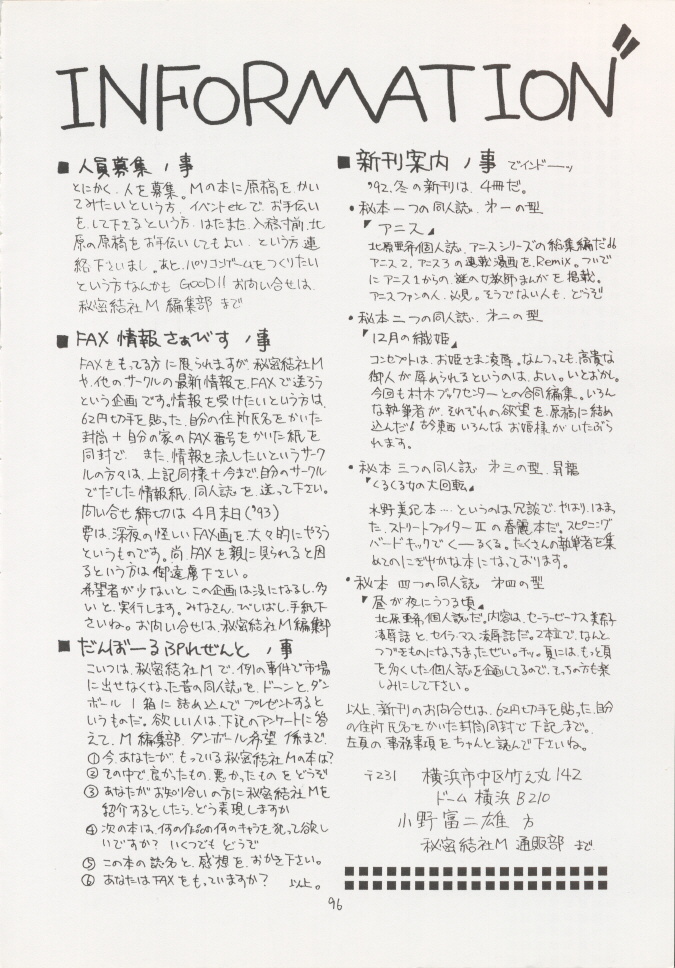 INFORMATION
■ 人員募集ノ事
とにかく、人を募集。Mの本に原稿をかい
てみたいという方、イベントetcで、お手伝い
をして下さるという方、はたまた、入稿寸前、北
原の原稿をお手伝いしてもよい、という方連
絡下さいまし。あと、パソコンゲームをつくりたい
という方なんかもGOOD!! お問い合せは、
秘密結社M 編集部まで
■ FAX情報さぁびすノ事
FAXをもってる方に限られますが、秘密結社M
や、他のサークルの最新情報を、FAXで送ろう
という企画です。情報を受けたいという方は、
62円切手を貼った、自分の住所氏名をかいた
封筒+自分の家のFAX番号をかいた紙を
同封で、また、情報を流したいというサーク
ルの方々は、上記同様+今まで、自分のサークル
でだした情報紙、同人誌を、送って下さい。
問い合せ締切は4月末日('93)
要は、深夜の怪しいFAX画を、大々的にやろう
というものです。尚FAXを親に見られると困
るという方は御遠慮下さい。
希望者が少ないと、この企画は没になるし、多
いと、実行します。みなさん、びしばし、手紙下
さいね。お問い合せは、秘密結社M編集部
■ だんぼーるぷれぜんとノ事
こいつは、秘密結社Mで、例の事件で市場
に出せなくなった昔の同人誌を、ドーンと、ダン
ボール1箱に詰め込んでプレゼントすると
いうものだ。欲しい人は、下記のアンケートに答
えて、M編集部、ダンボール希望係まで、
① 今、あなたが、もっている秘密結社Mの本は?
② その中で、良かったもの、悪かったものをどうぞ
③ あなたがお知り合いの方に秘密結社Mを
紹介するとしたら、どう表現しますか
④ 次の本は、何の作品の何のキャラを犯って欲し
いですか? いくつでもどうぞ
⑤ この本の誌名と、感想を、おかき下さい。
⑥ あなたはFAXをもっていますか? 以上。
■ 新刊案内ノ事 でインドーッ
'92.冬の新刊は、4冊だ。
・秘本一つの同人誌、第一の型
『アニス』
北原亜希個人誌、アニスシリーズの総集編だ!!
アニス2、アニス3の連載漫画を、Remix。ついで
にアニス1からの、謎の女教師まんがを掲載。
アニスファンの人、必見。そうでない人も、どうぞ
・秘本二つの同人誌、第二の型
『12月の織姫』
コンセプトは、お姫さま凌辱。なんつっても、高貴な
御人が辱められるというのは、よい。いとおかし。
今回も村木ブックセンターとの合同編集。いろん
な執筆者が、それぞれの欲望を、原稿に詰め
込んだ!!古今東西いろんなお姫様がいたぶら
れます。
・秘本三つの同人誌 第三の型、昇龍
『くるくる女の大回転』
水野美紀本‥‥というのは冗談で、やはり、はまっ
た、ストリートファイターⅡの春麗本だ。スピニング
バードキックでくーるくる。たくさんの執筆者を集
めてのにぎやかな本になっております。
・秘本四つの同人誌 第四の型
『昼が夜にうつる頃』
北原亜希個人誌だ。内容は、セーラービーナス美奈子
凌辱話と、セイラ・マス凌辱話だ。2本立で、なんと
つづきものになっちまったぜい。チッ。夏には、もっと頁
を多くした個人誌を企画してるので、そっちの方も楽
しみにして下さい。
以上、新刊のお問合せは、62円切手を貼った、自分
の住所氏名をかいた封筒同封で下記まで。
左頁の事務事項をちゃんと読んで下さいね。
〒231 横浜市中区竹之丸142
ドーム横浜B210
小野富二雄 方
秘密結社M 通販部 まで
96